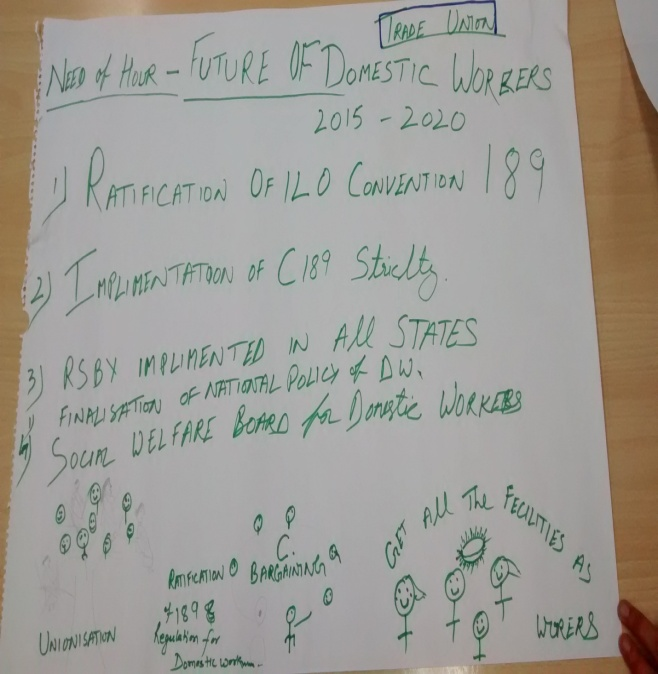 TRADE UNION
NEED of HOUR - FUTURE OF DOMESTIC WORKERS
2015 - 2020
1) RATIFICATION OF ILO CONVENTION 189
2) IMPLIMENTATOON OF C189 Strickty.
3) RSBY IMPLIMENTED IN All STATES
4) FINALISATION OF NATIONAL POLICY of DW.
5) SOCIAL WELFARE BOARD for Domestic WORKERS
UNIONISATION
RATIFICATION
of 189 &
Regulation for
Domestic
C.
BARGAINING
GET All The FECILITIES AS
WORERS